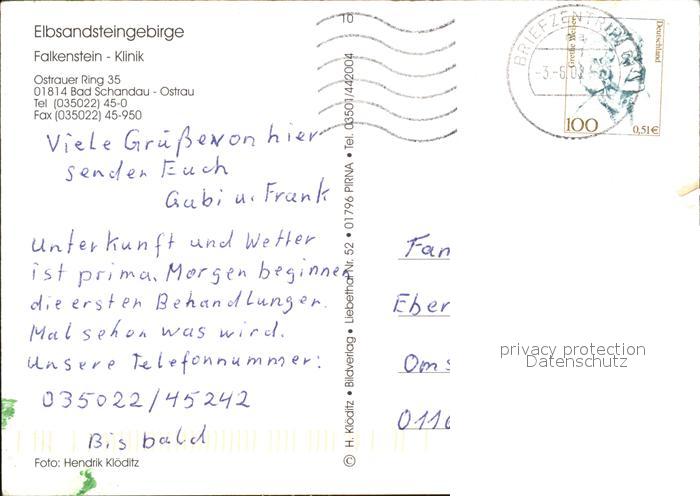 Elbsandsteingebirge
Falkenstein - Klinik
Ostrauer Ring 35
01814 Bad Schandau - Ostrau
Tel (035022) 45-0
Fax (035022) 45-950
Viele Grüße von hier
senden Euch
Gabi u. Frank
Unterkunft und Wetter
ist prima. Morgen beginnen
die ersten Behandlungen.
Mal sehen was wird.
Unsere Telefonnummer:
035022/45242
Bis bald
Foto: Hendrik Klöditz
© H. Klöditz • Bildverlag • Liebethal Nr. 52 • 01796 PIRNA • Tel. 03501/442004
10
BRIEFZENTRUM
Grethe Weiser
Deutschland
100
0,51€
Fam
Eber
Oms
011
privacy protection
Datenschutz